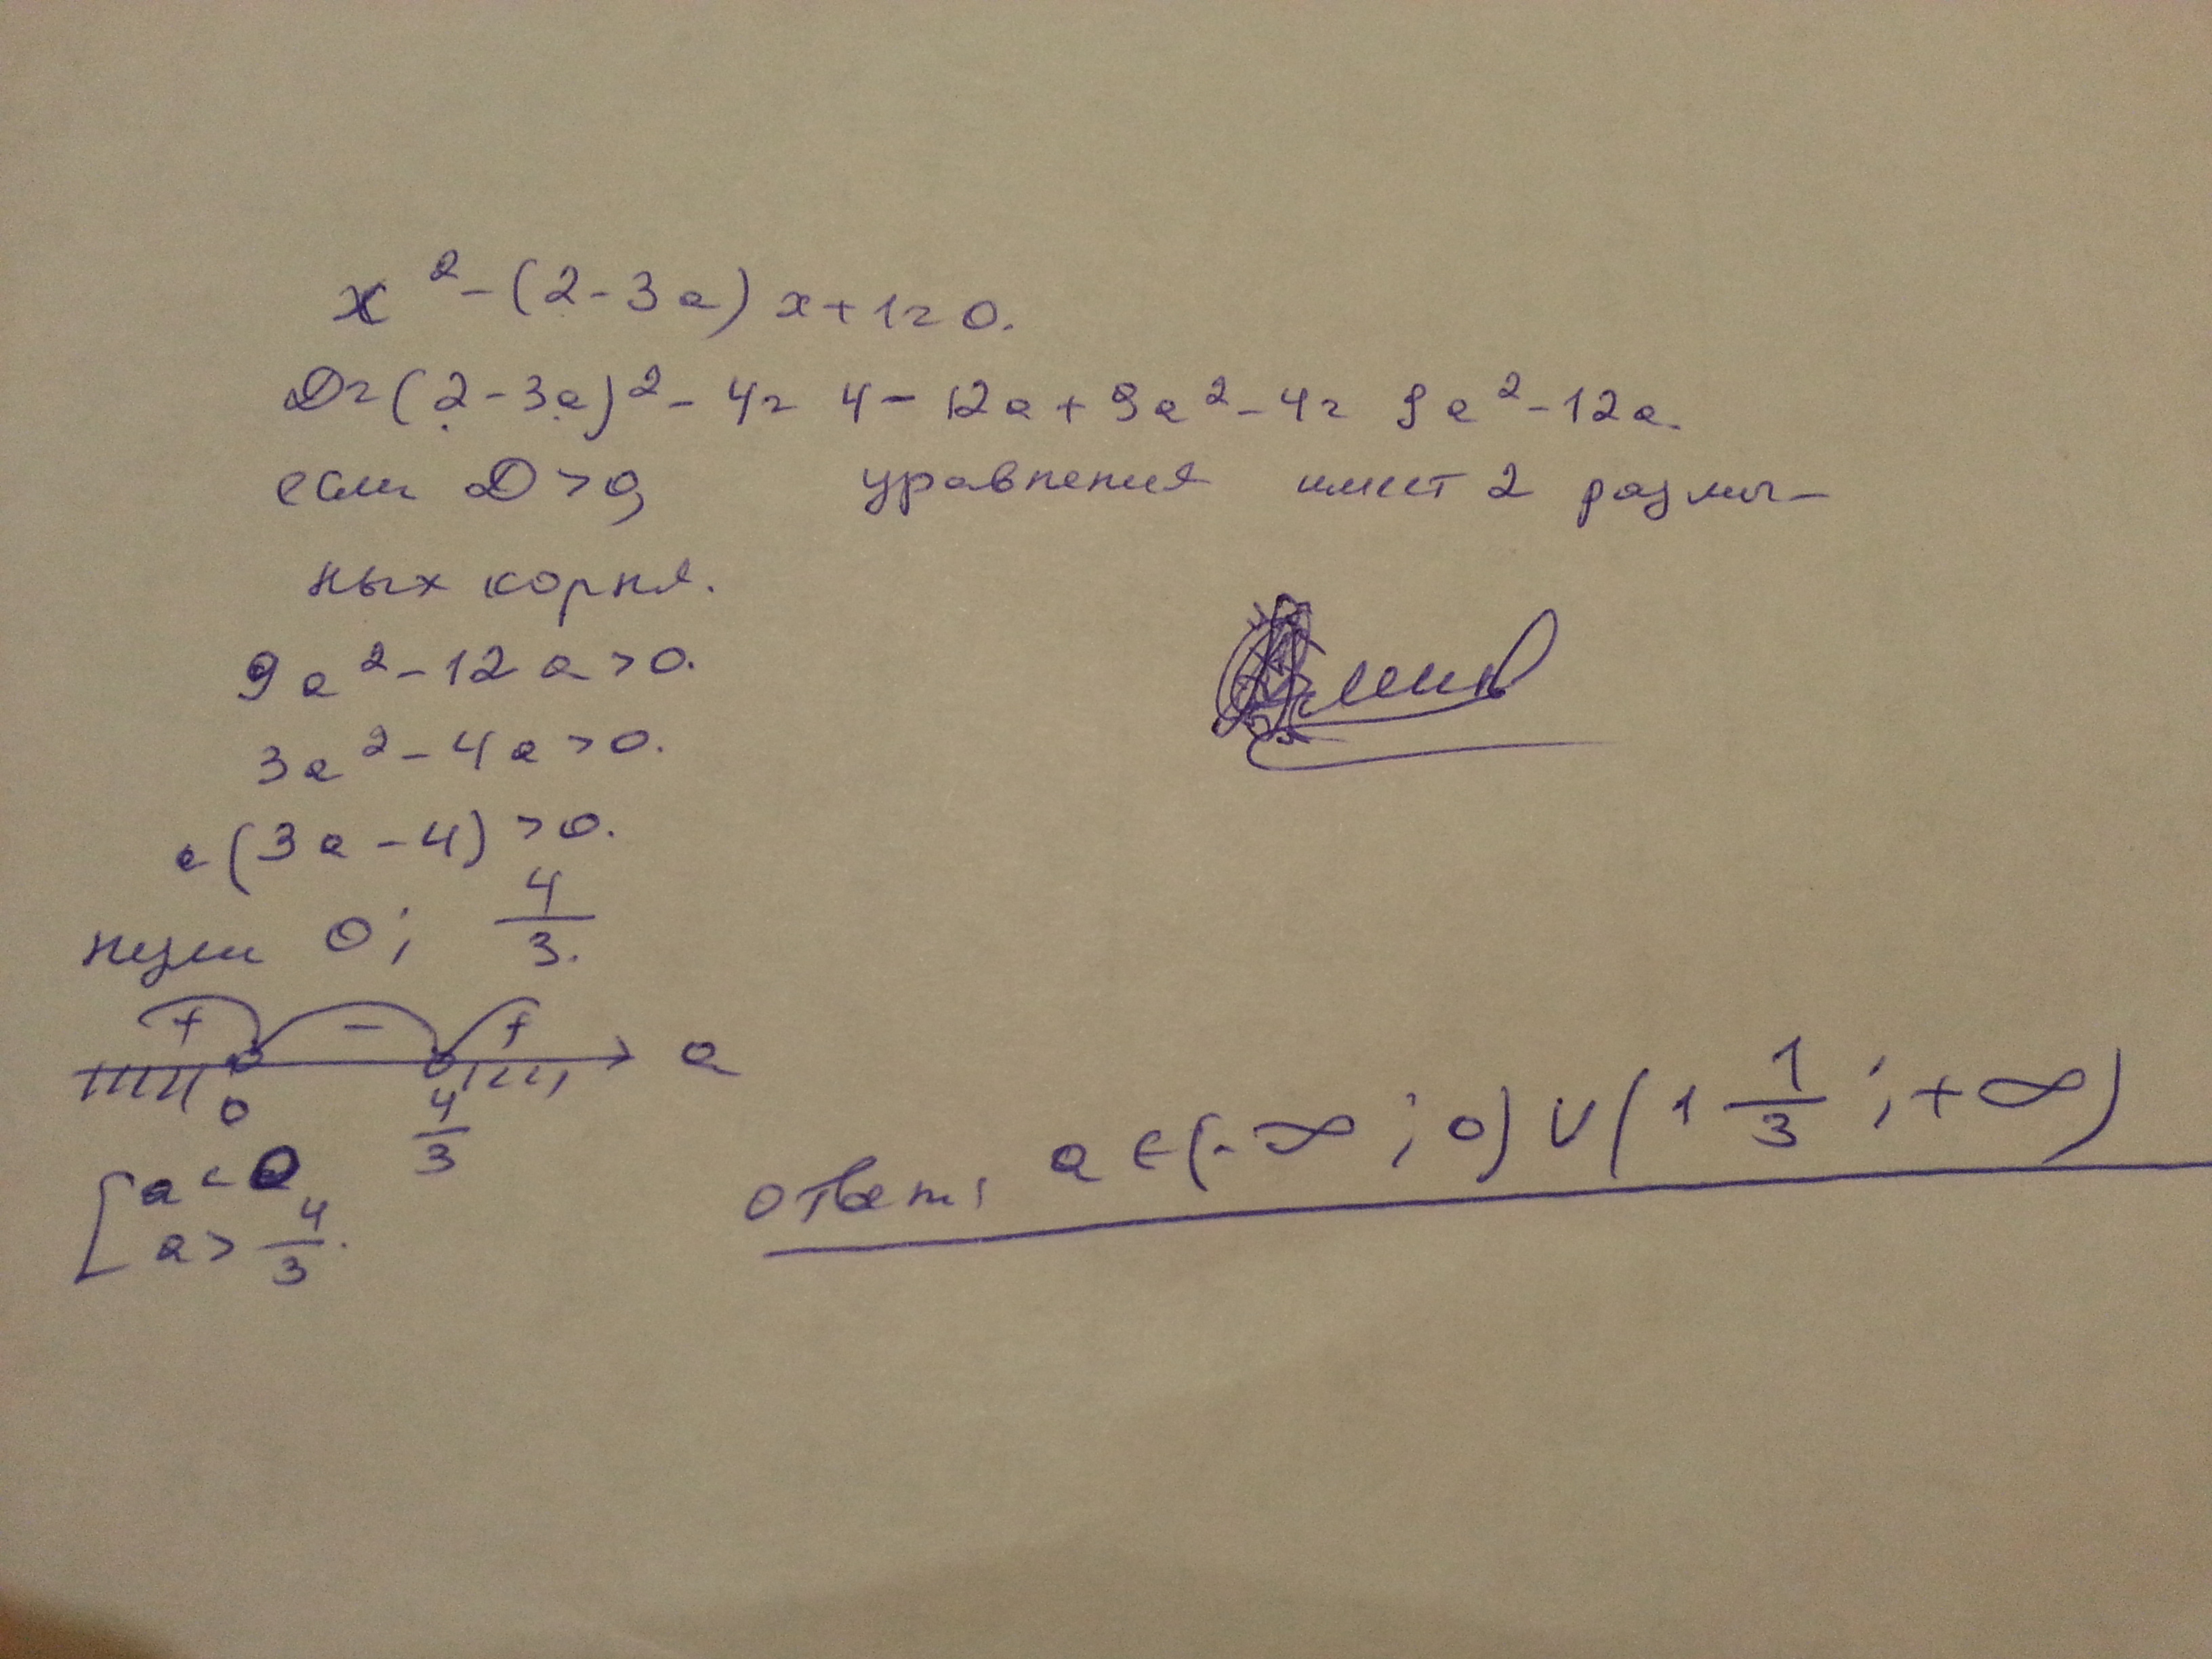 x² - (2 - 3a) x + 1 = 0.
D = (2 - 3a)² - 4 = 4 - 12a + 9a² - 4 = 9a² - 12a.
если D > 0, уравнения имеет 2 различ-
ных корня.
9a² - 12a > 0.
3a² - 4a > 0.
a(3a - 4) > 0.
нули 0; 4/3.
+ - + a
0 4/3
[ a < 0
a > 4/3.
ответ: a ∈ (-∞; 0) ∪ (1 1/3; +∞)